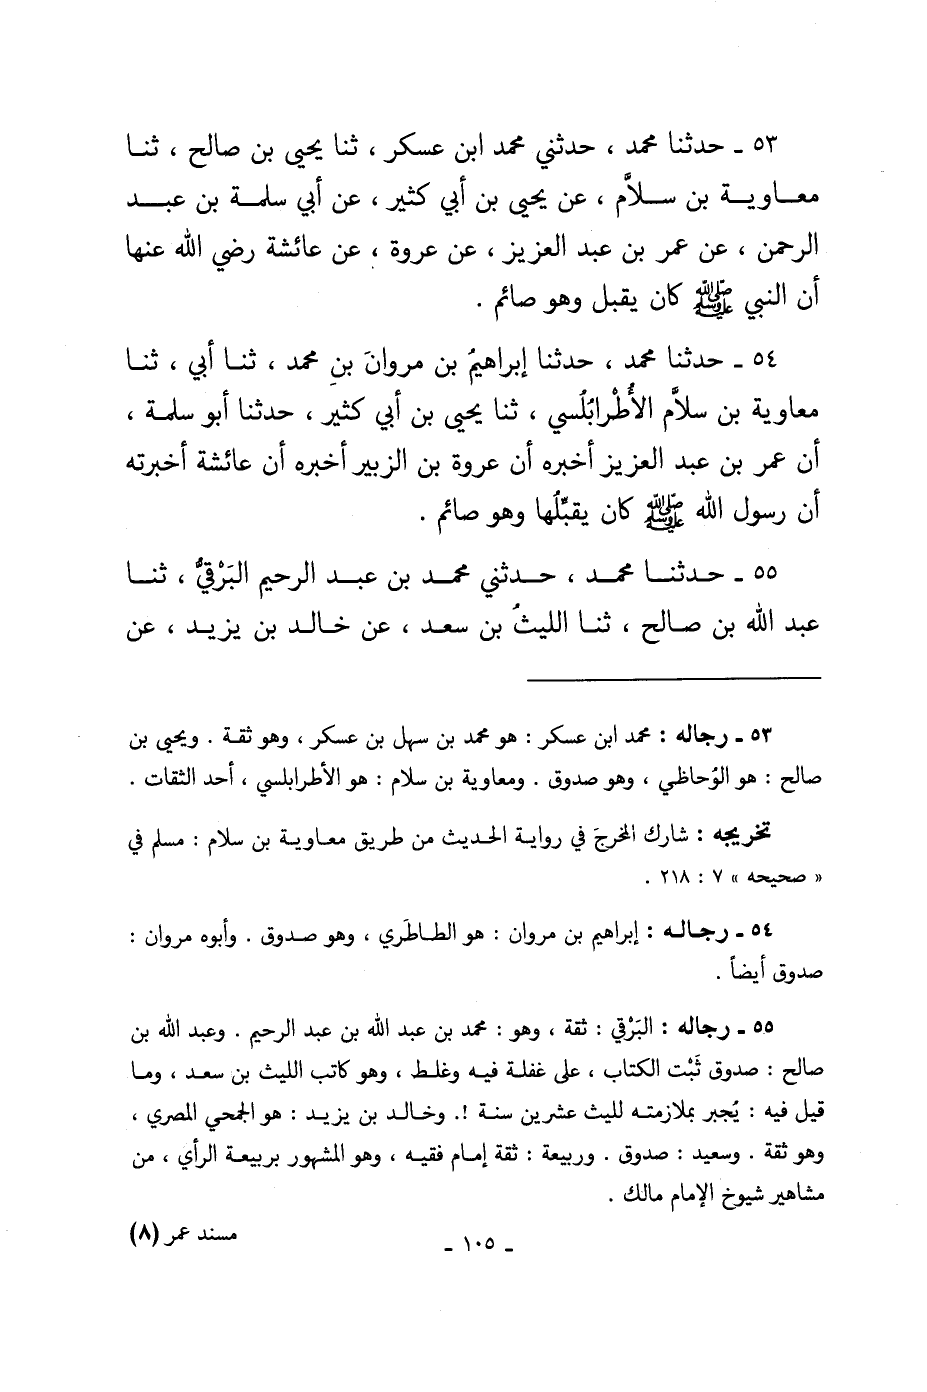 ٥٣ ـ حدثنا محمد ، حدثني محمد ابن عسكر ، ثنا يحيى بن صالح ، ثنا
معاوية بن سلاَّم ، عن يحيى بن أبي كثير ، عن أبي سلمة بن عبد
الرحمن ، عن عمر بن عبد العزيز ، عن عروة ، عن عائشة رضي الله عنها
أن النبي ﷺ كان يقبل وهو صائم .
٥٤ ـ حدثنا محمد ، حدثنا إبراهيمُ بن مروانَ بنِ محمد ، ثنا أبي ، ثنا
معاوية بن سلاَّم الأُطْرابُلُسي ، ثنا يحيى بن أبي كثير ، حدثنا أبو سلمة ،
أن عمر بن عبد العزيز أخبره أن عروة بن الزبير أخبره أن عائشة أخبرته
أن رسول الله ﷺ كان يقبِّلُها وهو صائم .
٥٥ ـ حدثنا محمد ، حدثني محمد بن عبد الرحيم البَرْقيُّ ، ثنا
عبد الله بن صالح ، ثنا الليثُ بن سعد ، عن خالد بن يزيد ، عن
٥٣ ـ رجاله : محمد ابن عسكر : هو محمد بن سهل بن عسكر ، وهو ثقة . ويحيى بن
صالح : هو الوُحاظي ، وهو صدوق . ومعاوية بن سلام : هو الأطرابلسي ، أحد الثقات .
تخريجه : شارك المخرجَ في رواية الحديث من طريق معاوية بن سلام : مسلم في
« صحيحه » ٧ : ٢١٨ .
٥٤ ـ رجاله : إبراهيم بن مروان : هو الطاطَري ، وهو صدوق . وأبوه مروان :
صدوق أيضاً .
٥٥ ـ رجاله : البَرْقي : ثقة ، وهو : محمد بن عبد الله بن عبد الرحيم . وعبد الله بن
صالح : صدوق ثَبْت الكتاب ، على غفلة فيه وغلط ، وهو كاتب الليث بن سعد ، وما
قيل فيه : يُجبر بملازمته لليث عشرين سنة !. وخالد بن يزيد : هو الجمحي المصري ،
وهو ثقة . وسعيد : صدوق . وربيعة : ثقة إمام فقيه ، وهو المشهور بربيعة الرأي ، من
مشاهير شيوخ الإمام مالك .
ـ ١٠٥ ـ
مسند عمر (٨)